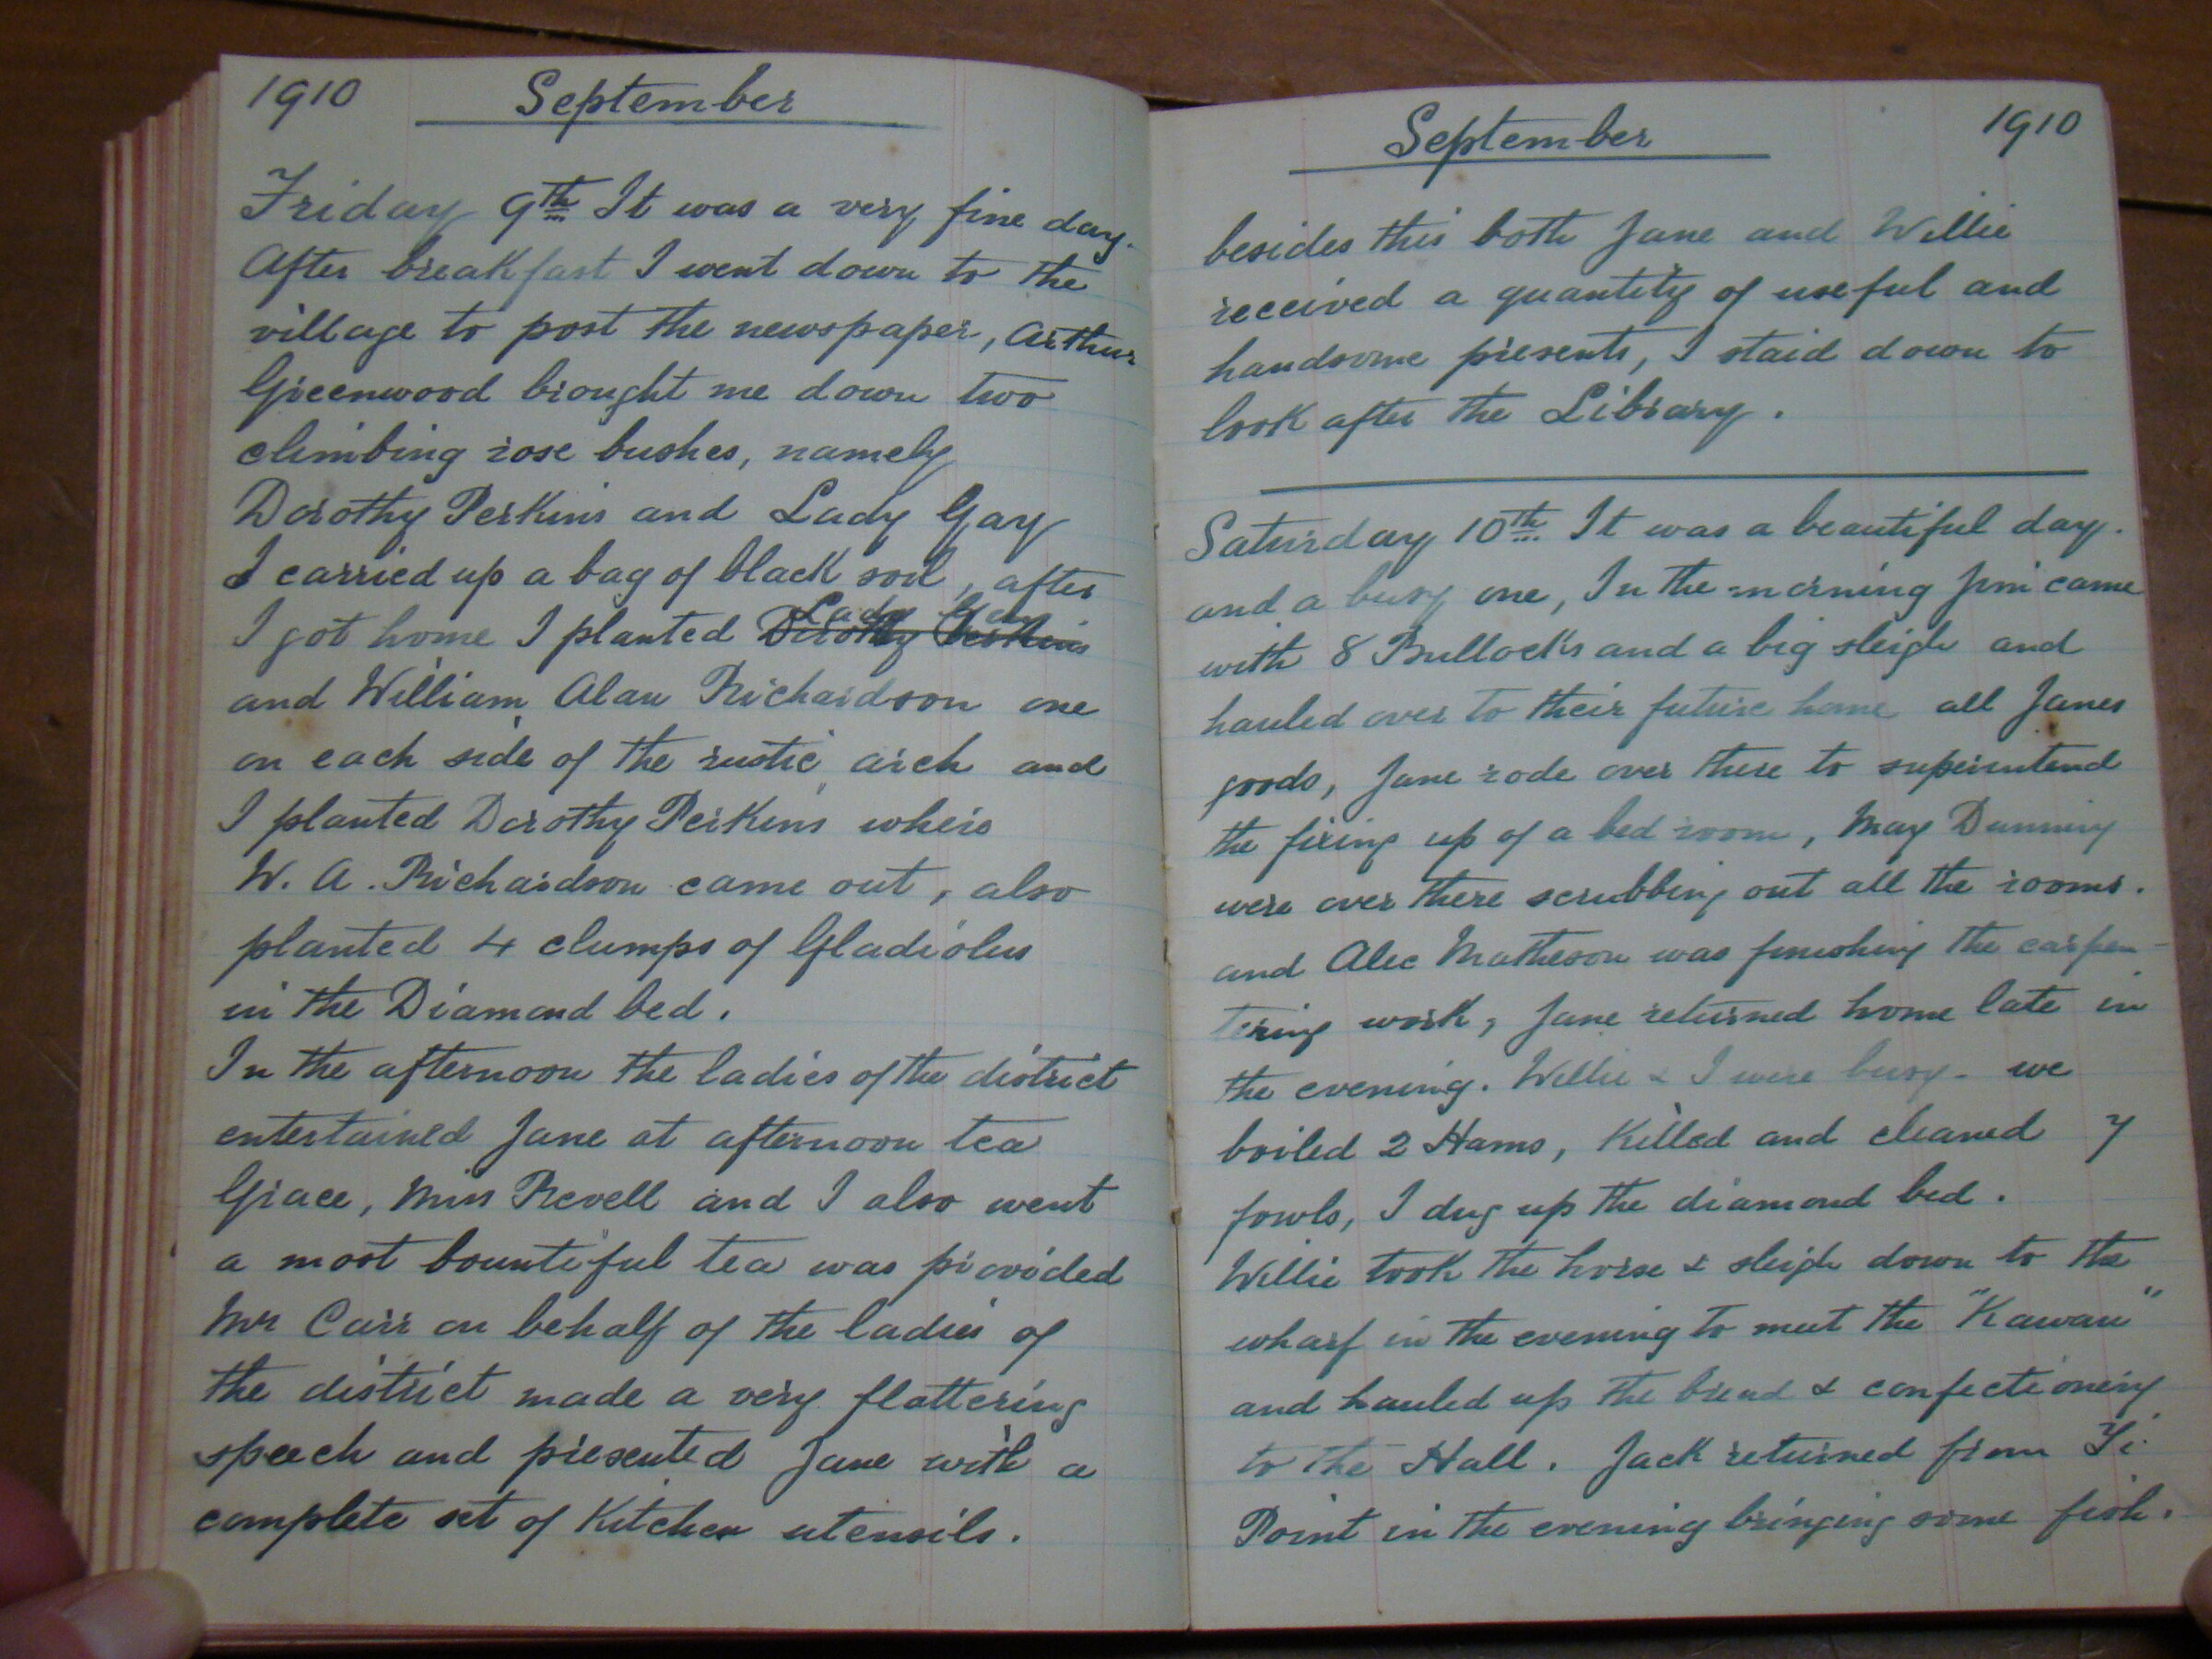 1910 September
Friday 9th It was a very fine day.
After breakfast I went down to the
village to post the newspaper, Arthur
Greenwood brought me down two
climbing rose bushes, namely
Dorothy Perkins and Lady Gay
I carried up a bag of black soil, after
Lady Gay
I got home I planted Dorothy Perkins
and William Alan Richardson one
on each side of the rustic arch and
I planted Dorothy Perkins where
W. A. Richardson came out, also
planted 4 clumps of Gladiolus
in the Diamond bed.
In the afternoon the ladies of the district
entertained Jane at afternoon tea
Grace, Miss Revell and I also went
a most bountiful tea was provided
Mr Carr on behalf of the ladies of
the district made a very flattering
speech and presented Jane with a
complete set of Kitchen utensils.
September 1910
besides this both Jane and Willie
received a quantity of useful and
handsome presents, I staid down to
look after the Library.
Saturday 10th It was a beautiful day.
and a busy one, In the morning Jim came
with 8 Bullocks and a big sleigh and
hauled over to their future home all Janes
goods, Jane rode over there to superintend
the fixing up of a bed room, May Dunning
were over there scrubbing out all the rooms.
and Alec Matheson was finishing the carpen-
tering work, Jane returned home late in
the evening. Willie & I were busy. we
boiled 2 Hams, Killed and cleaned 7
fowls, I dug up the diamond bed.
Willie took the horse & sleigh down to the
wharf in the evening to meet the "Kawau"
and hauled up the bread & confectionery
to the Hall. Jack returned from Ti
Point in the evening bringing some fish.